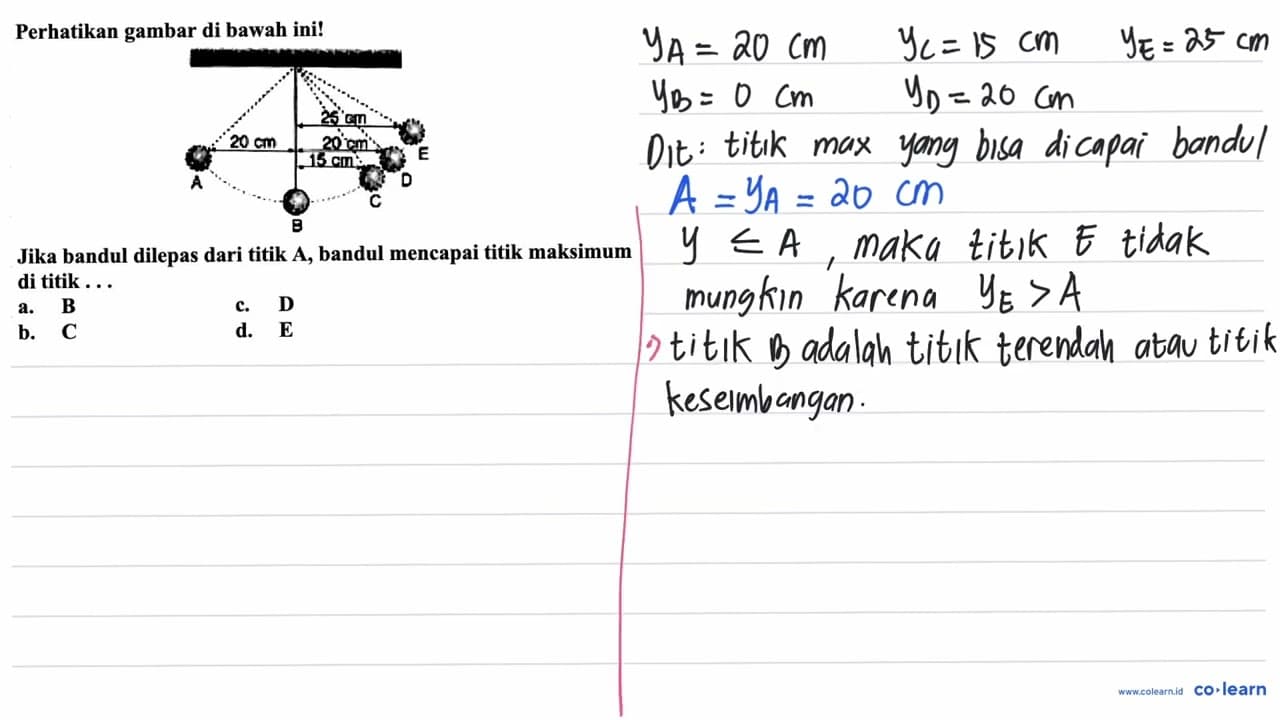 Perhatikan gambar di bawah ini!
25 cm
20 cm
20 cm
15 cm
E
A
D
C
B
Jika bandul dilepas dari titik A, bandul mencapai titik maksimum
di titik . . .
a. B
c. D
b. C
d. E
yA = 20 cm
yC = 15 cm
yE = 25 cm
yB = 0 cm
yD = 20 cm
Dit: titik max yang bisa dicapai bandul
A = yA = 20 cm
y ≤ A , maka titik E tidak
mungkin karena yE > A
titik B adalah titik terendah atau titik
keseimbangan.
www.colearn.id
co·learn